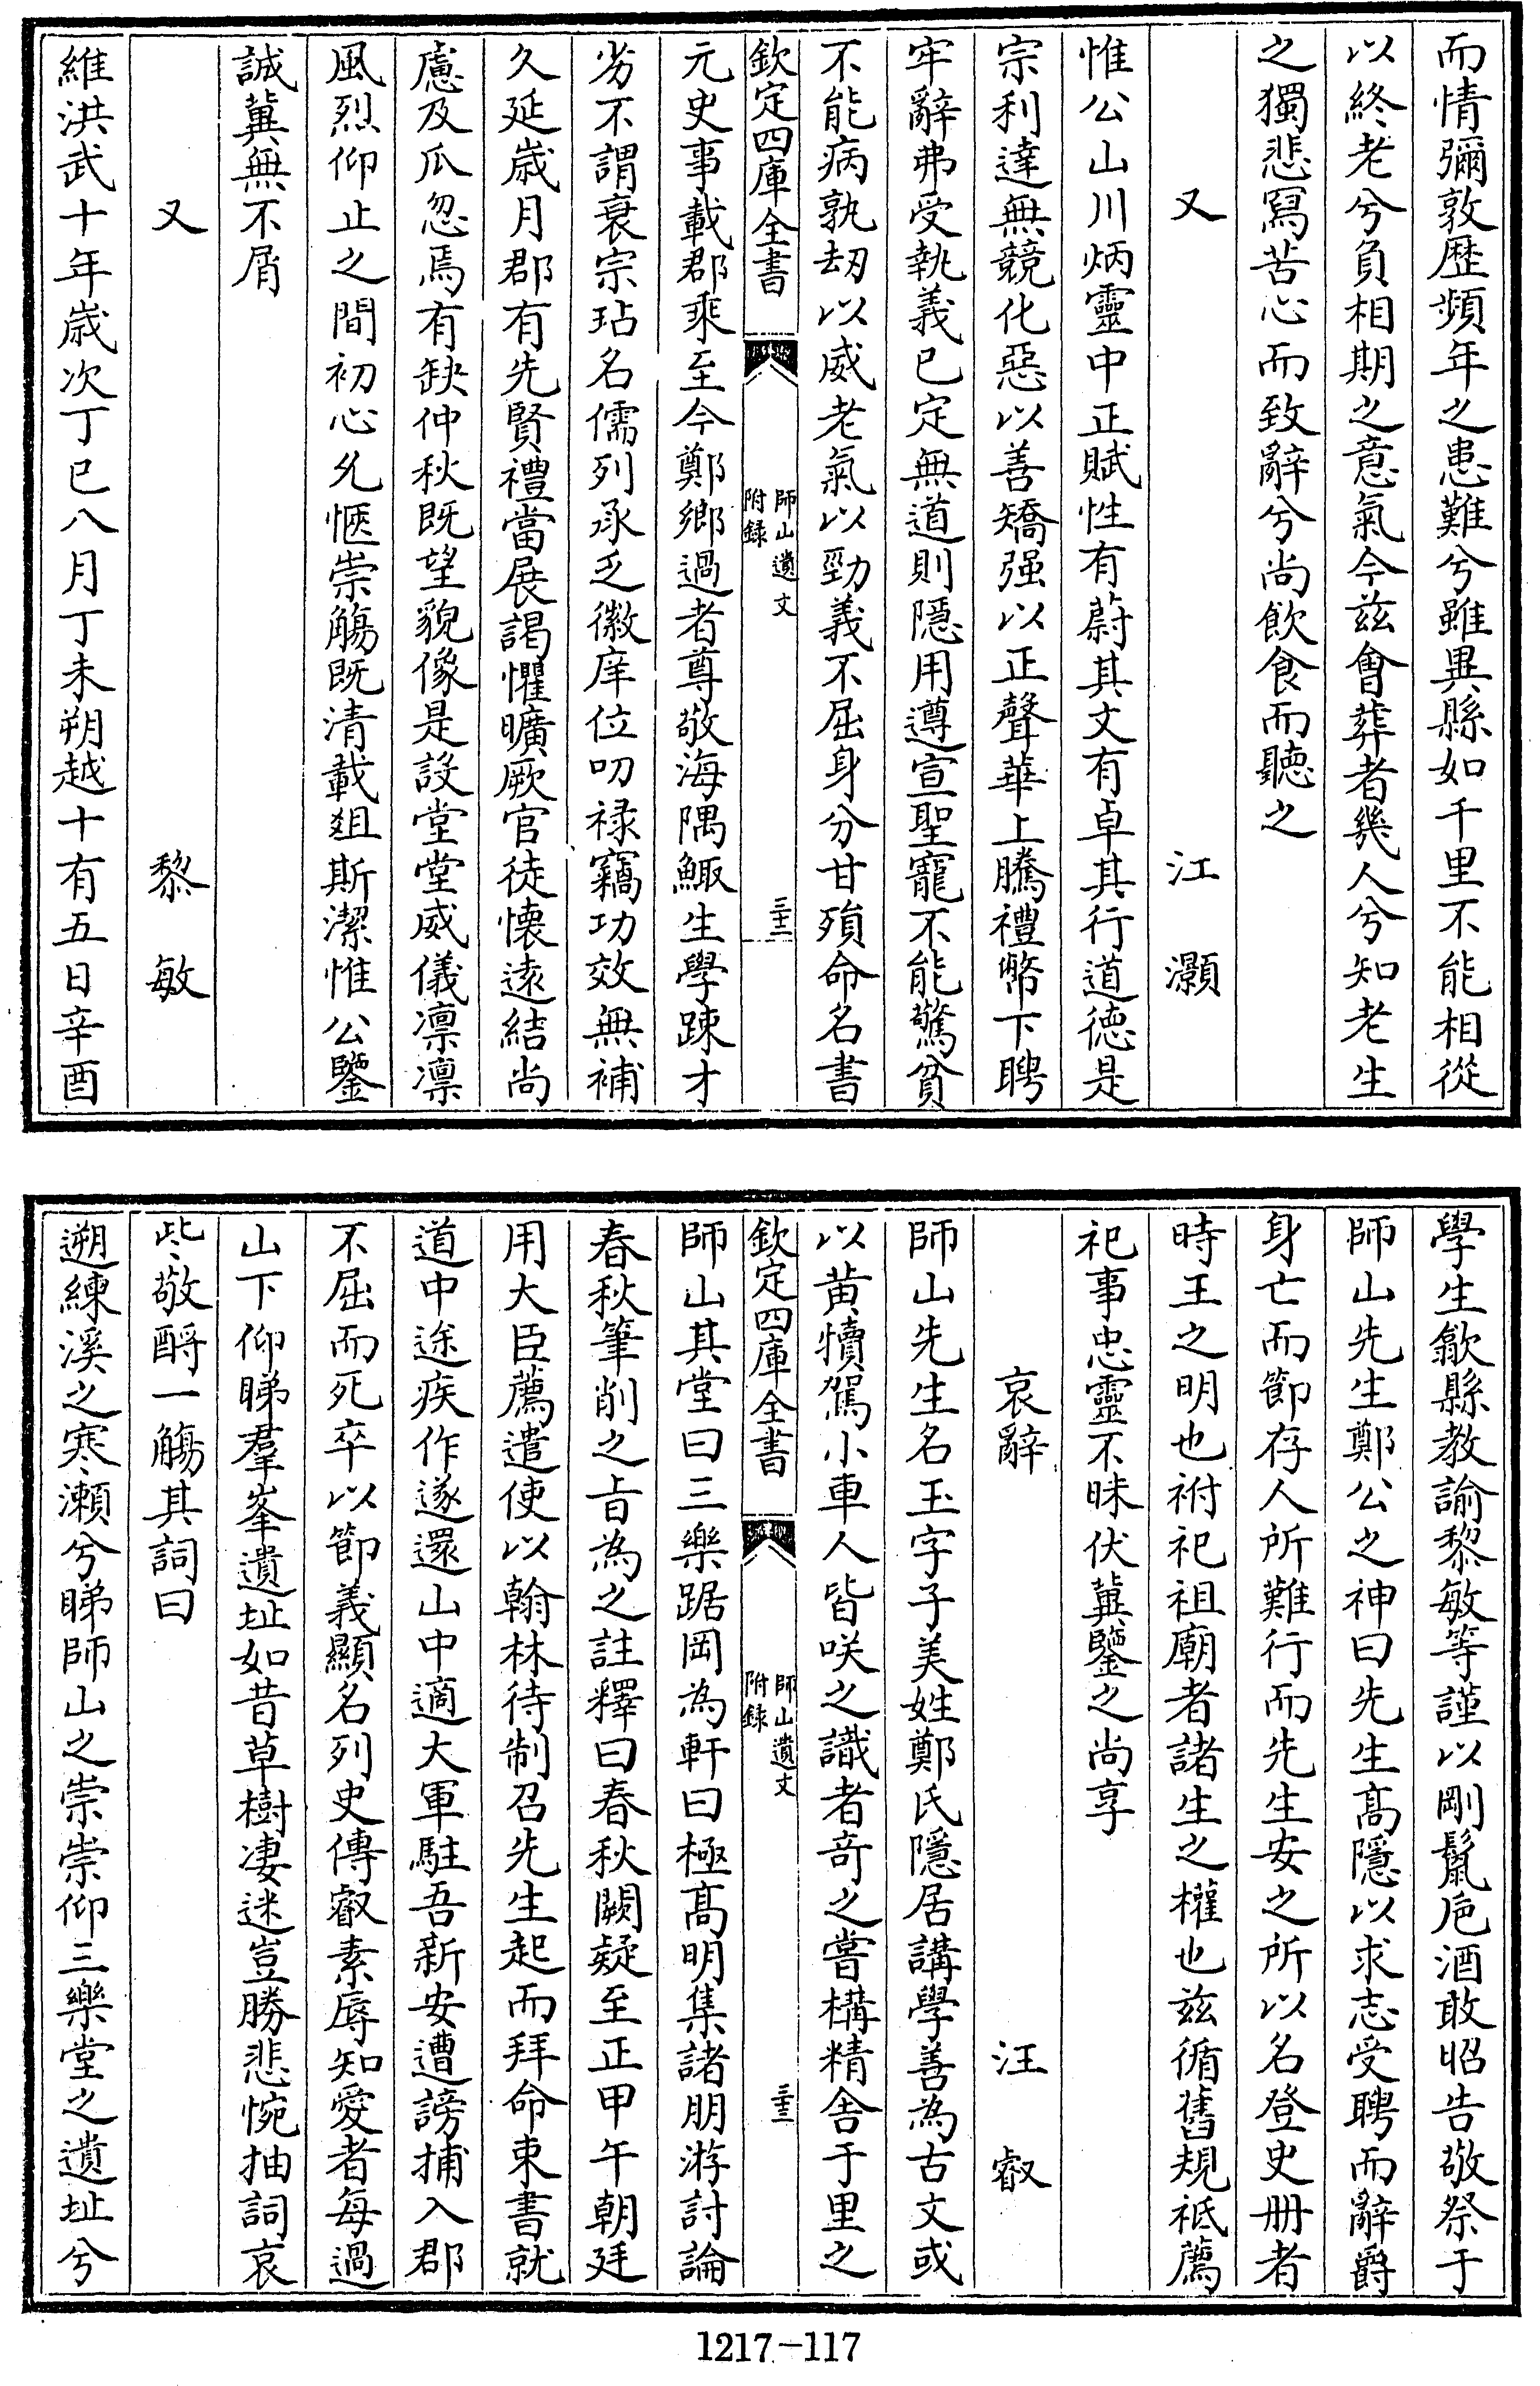 而情彌敦歴頻年之患難兮雖異縣如千里不能相從
以終老兮負相期之意氣今兹會葬者幾人兮知老生
之獨悲寫苦心而致辭兮尚飲食而聽之
又 江灝
惟公山川炳靈中正賦性有蔚其文有卓其行道德是
宗利達無競化惡以善矯强以正聲華上騰禮幣下聘
牢辭弗受執義已定無道則隱用遵宣聖寵不能驚貧
不能病孰刧以威老氣以勁義不屈身分甘殞命名書
欽定四庫全書 師山遺文附録 三十二
元史事載郡乘至今鄭鄉過者尊敬海隅鯫生學踈才
劣不謂衰宗玷名儒列承乏徽庠位叨禄竊功效無補
久延歲月郡有先賢禮當展謁懼曠厥官徒懐遠結尚
慮及瓜忽焉有缺仲秋既望貌像是設堂堂威儀凛凛
風烈仰止之間初心允愜崇觴既清載俎斯潔惟公鑒
誠冀無不屑
又 黎敏
維洪武十年歲次丁巳八月丁未朔越十有五日辛酉
學生歙縣教諭黎敏等謹以剛鬛巵酒敢昭告敬祭于
師山先生鄭公之神曰先生髙隱以求志受聘而辭爵
身亡而節存人所難行而先生安之所以名登史册者
時王之明也祔祀祖廟者諸生之權也兹循舊規祗薦
祀事忠靈不昧伏冀鑒之尚享
哀辭 汪叡
師山先生名玉字子美姓鄭氏隱居講學善為古文或
以黄犢駕小車人皆咲之識者竒之嘗構精舍于里之
欽定四庫全書 師山遺文附録 三十三
師山其堂曰三樂踞岡為軒曰極髙明集諸朋游討論
春秋筆削之旨為之註釋曰春秋闕疑至正甲午朝廷
用大臣薦遣使以翰林待制召先生起而拜命束書就
道中途疾作遂還山中適大軍駐吾新安遭謗捕入郡
不屈而死卒以節義顯名列史傳叡素辱知愛者每過
山下仰睇羣峯遺址如昔草樹凄迷豈勝悲惋抽詞哀
些敬酹一觴其詞曰
遡練溪之寒瀬兮睇師山之崇崇仰三樂堂之遺址兮
1217-117